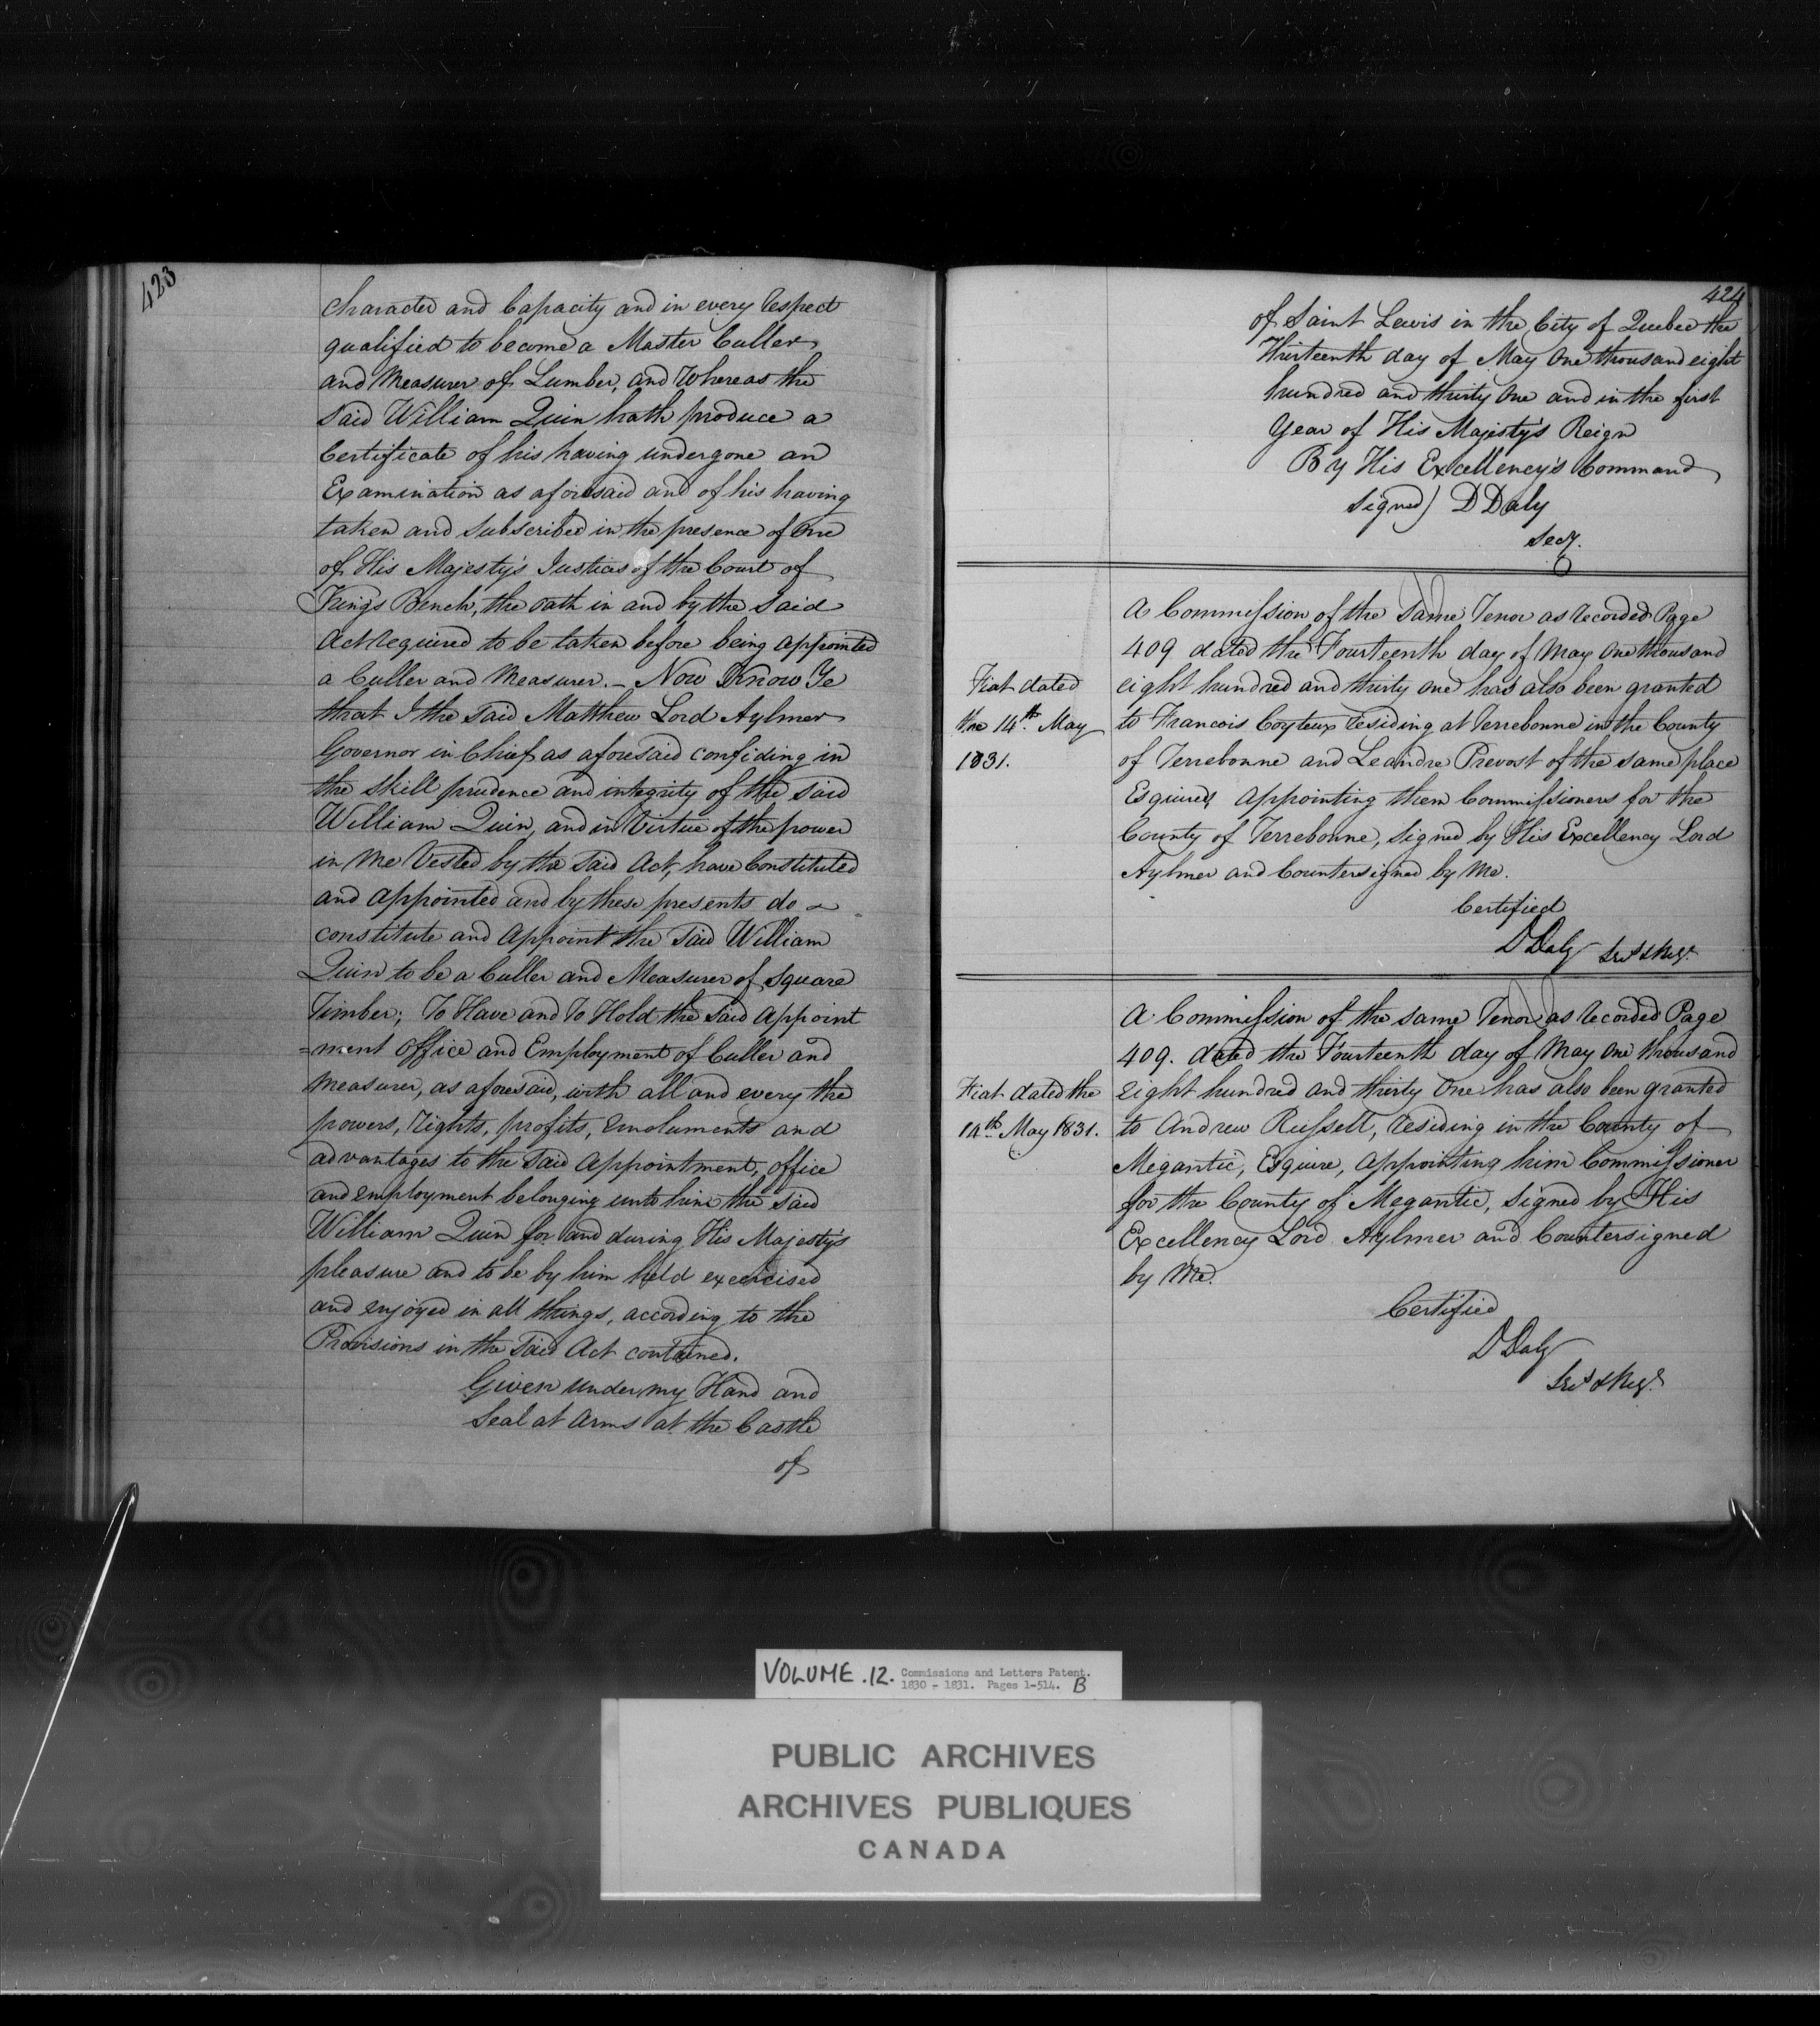 423
Character and Capacity and in every respect
qualified to become a Master Culler
and Measurer of Lumber, and Whereas the
said William Quin hath produce a
Certificate of his having undergone an
Examination as aforesaid and of his having
taken and subscribed in the presence of One
of His Majesty's Justices of the Court of
Kings Bench, the oath in and by the said
Act required to be taken before being appointed
a Culler and Measurer. - Now Know Ye
that I the said Matthew Lord Aylmer
Governor in Chief as aforesaid confiding in
the skill prudence and integrity of the said
William Quin, and in Virtue of the power
in Me Vested by the said Act, have Constituted
and appointed and by these presents do
constitute and Appoint the said William
Quin to be a Culler and Measurer of square
Timber; To Have and To Hold the said Appoint
=ment Office and Employment of Culler and
Measurer, as aforesaid, with all and every the
powers, Rights, profits, Emoluments and
advantages to the said Appointment, office
and employment belonging unto him the said
William Quin for and during His Majesty's
pleasure and to be by him held exercised
and enjoyed in all things, according to the
Provisions in the said Act contained.
Given under my Hand and
Seal at Arms at the Castle
of
424
of Saint Lewis in the City of Quebec the
Thirteenth day of May One thousand eight
hundred and thirty One and in the first
Year of His Majesty's Reign
By His Excellency's Command
Signed) D Daly
Secy.
A Commission of the same Tenor as recorded Page
409 dated the Fourteenth day of May One thousand
Fiat dated
the 14th May
1831.
eight hundred and thirty one has also been granted
to Francois Coyteux residing at Terrebonne in the County
of Terrebonne and Leandre Prevost of the same place
Esquires, Appointing them Commissioners for the
County of Terrebonne, Signed by His Excellency Lord
Aylmer and Countersigned by Me.
Certified
D Daly Secy & Regr.
A Commission of the same Tenor as recorded Page
409. dated the Fourteenth day of May One thousand
Fiat dated the
14th May 1831.
eight hundred and thirty One has also been granted
to Andrew Russell, residing in the County of
Megantic, Esquire, Appointing him Commissioner
for the County of Megantic, Signed by His
Excellency Lord Aylmer and Countersigned
by Me.
Certified
D Daly
Secy & Regr.
VOLUME .12. Commissions and Letters Patent.
1830 - 1831. Pages 1-514. B
PUBLIC ARCHIVES
ARCHIVES PUBLIQUES
CANADA